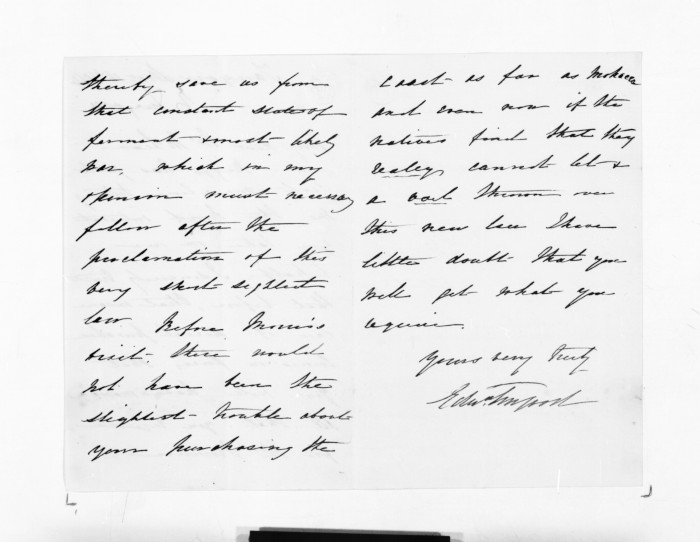 thereby save us from
that constant state of
ferment & most likely
war, which in my
opinion must necessary
follow after the
proclamation of this
very short sighted
law Before Morris's
visit. there would
not have been the
slightest trouble about
your purchasing the
coast as far as Mohaca
and even now if the
natives find that they
realey cannot let &
a vail thrown over
this new law I have
little doubt that you
will get what you
require.
Yours very truly
Edw